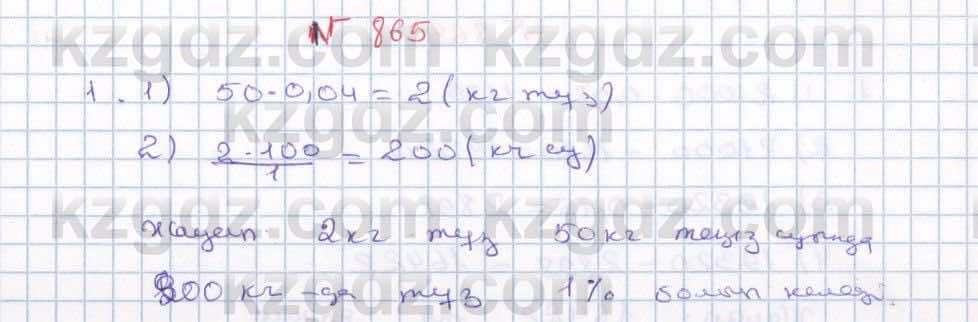 № 865
1. 1) 50·0,04 = 2 (кг тұз)
2) 2·100/1 = 200 (кг су)
Жауап: 2кг тұз 50кг теңіз суында
200 кг-да тұз 1% болып келеді.
kzgdz.com kzgdz.com
kzgdz.com
kzgdz.com kzgdz.com
kzgdz.com